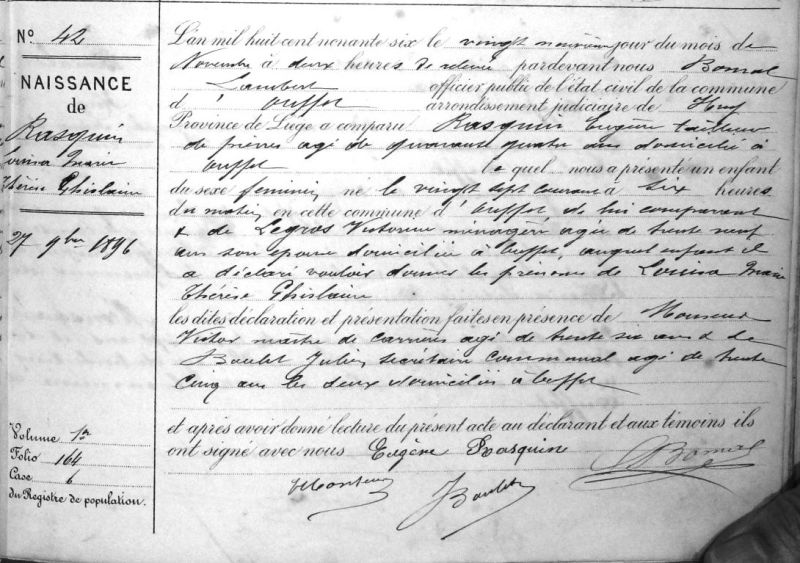 N° 42
NAISSANCE
de
Rasquin
Louisa Marie
Thérèse Ghislaine
27 9bre 1896
Volume 1er
Folio 164
Case 6
du Registre de population.
L'an mil huit cent nonante six le vingt neuvième jour du mois de
Novembre à deux heures de relevée pardevant nous Bonral
Lambert officier public de l'état civil de la commune
d' Ouffet arrondissement judiciaire de Huy
Province de Liège a comparu Rasquin Eugène tailleur
de pierres agé de quarante quatre ans domicilié à
Ouffet lequel nous a présenté un enfant
du sexe féminin, né le vingt sept courant à six heures
du matin, en cette commune d' Ouffet, de lui comparant
& de Legros Victorine ménagère agée de trente neuf
ans son épouse domiciliée à Ouffet, auquel enfant il
a déclaré vouloir donner les prénoms de Louisa Marie
Thérèse Ghislaine
les dites déclaration et présentation faites en présence de
Victor maitre de carrières agé de trente six ans & de
Boulet Julien, secrétaire communal agé de trente
cinq ans les deux domiciliés à Ouffet
et après avoir donné lecture du présent acte au déclarant et aux témoins ils
ont signé avec nous Eugène Rasquin
Boulet